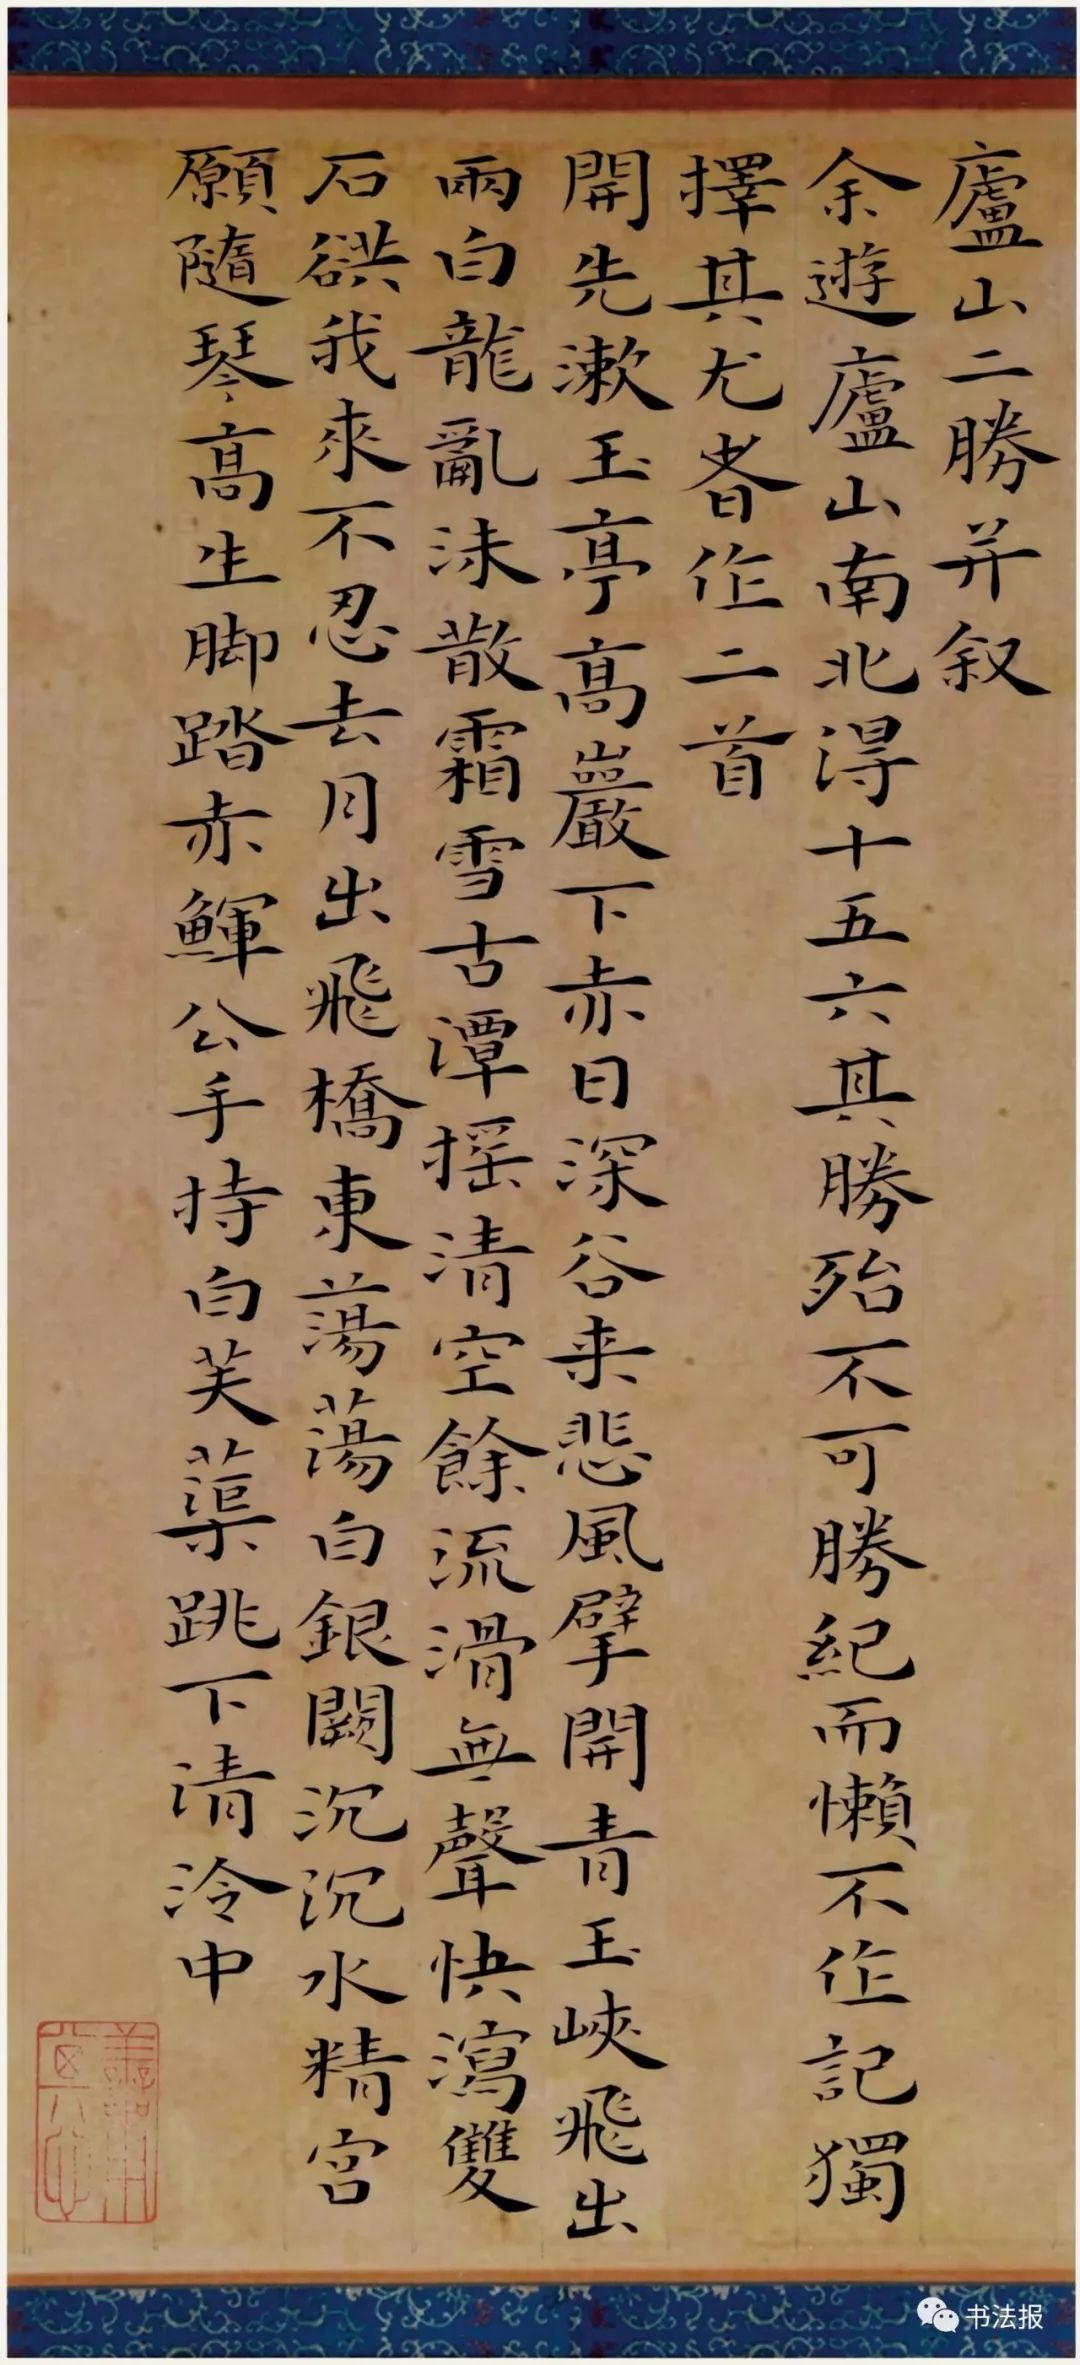 廬山二勝并叙
余遊廬山南北得十五六其勝殆不可勝紀而懶不作記獨
擇其尤者作二首
開先漱玉亭高巖下赤日深谷来悲風擘開青玉峽飛出
兩白龍亂沫散霜雪古潭搖清空餘流滑無聲快瀉雙
石谼我來不忍去月出飛橋東蕩蕩白銀闕沉沉水精宮
願隨琴高生脚踏赤鯶公手持白芙蕖跳下清泠中
书法报